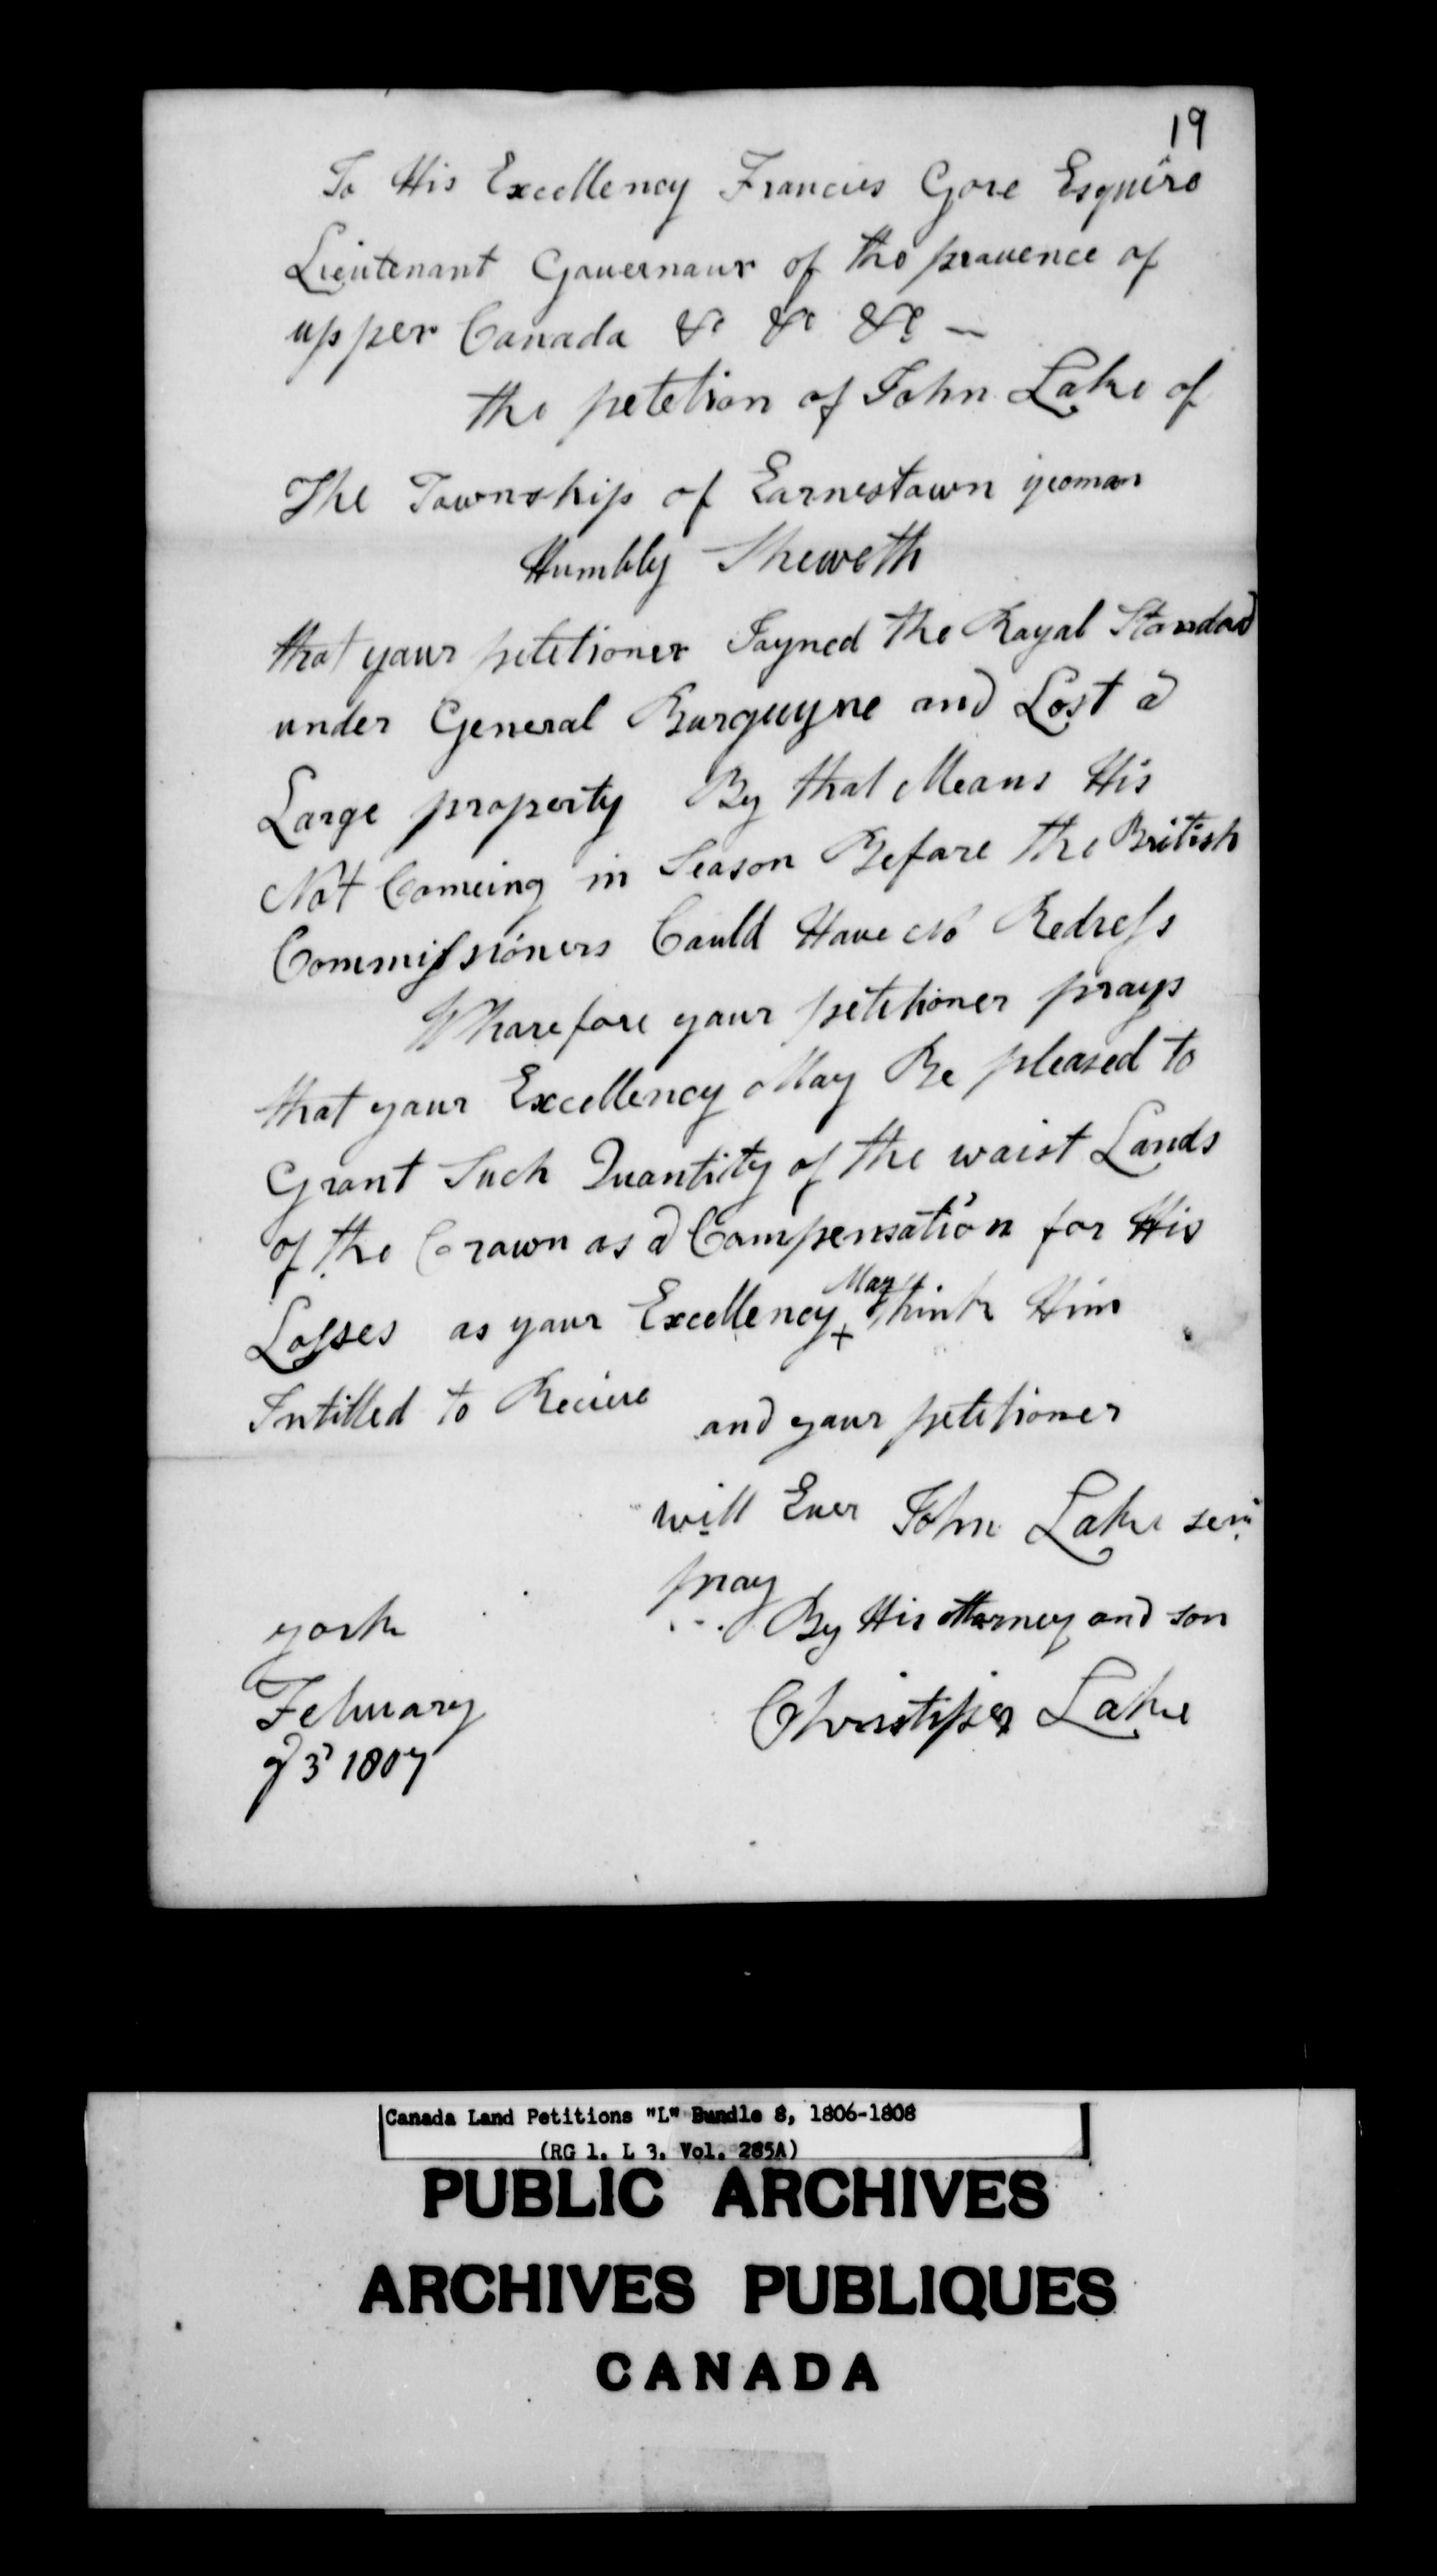 19
To His Excellency Francies Gore Esquire
Lieutenant Gouernour of the prouence of
upper Canada &c &c &c —
the petetion of John Lake of
The Township of Earnestown yeoman
Humbly Sheweth
that your petetioner Joyned the Royal Standad
under General Burguyne and Lost a
Large property By that Means His
Not Comeing in Season Before the British
Commissioners Could Have No Redress
Wharefore your petetioner prays
that your Excellency May Be pleased to
Grant Such Quantity of the waist Lands
of the Crown as a Compensation for His
May
Losses as your Excellency + think Him
Intitled to Recieve and your petetioner
will Ever John Lake senr
pray
By His Attorney and son
york
February Christiper Lake
3 1807
Canada Land Petitions "L" Bundle 8, 1806-1808
(RG 1, L 3, Vol. 285A)
PUBLIC ARCHIVES
ARCHIVES PUBLIQUES
CANADA